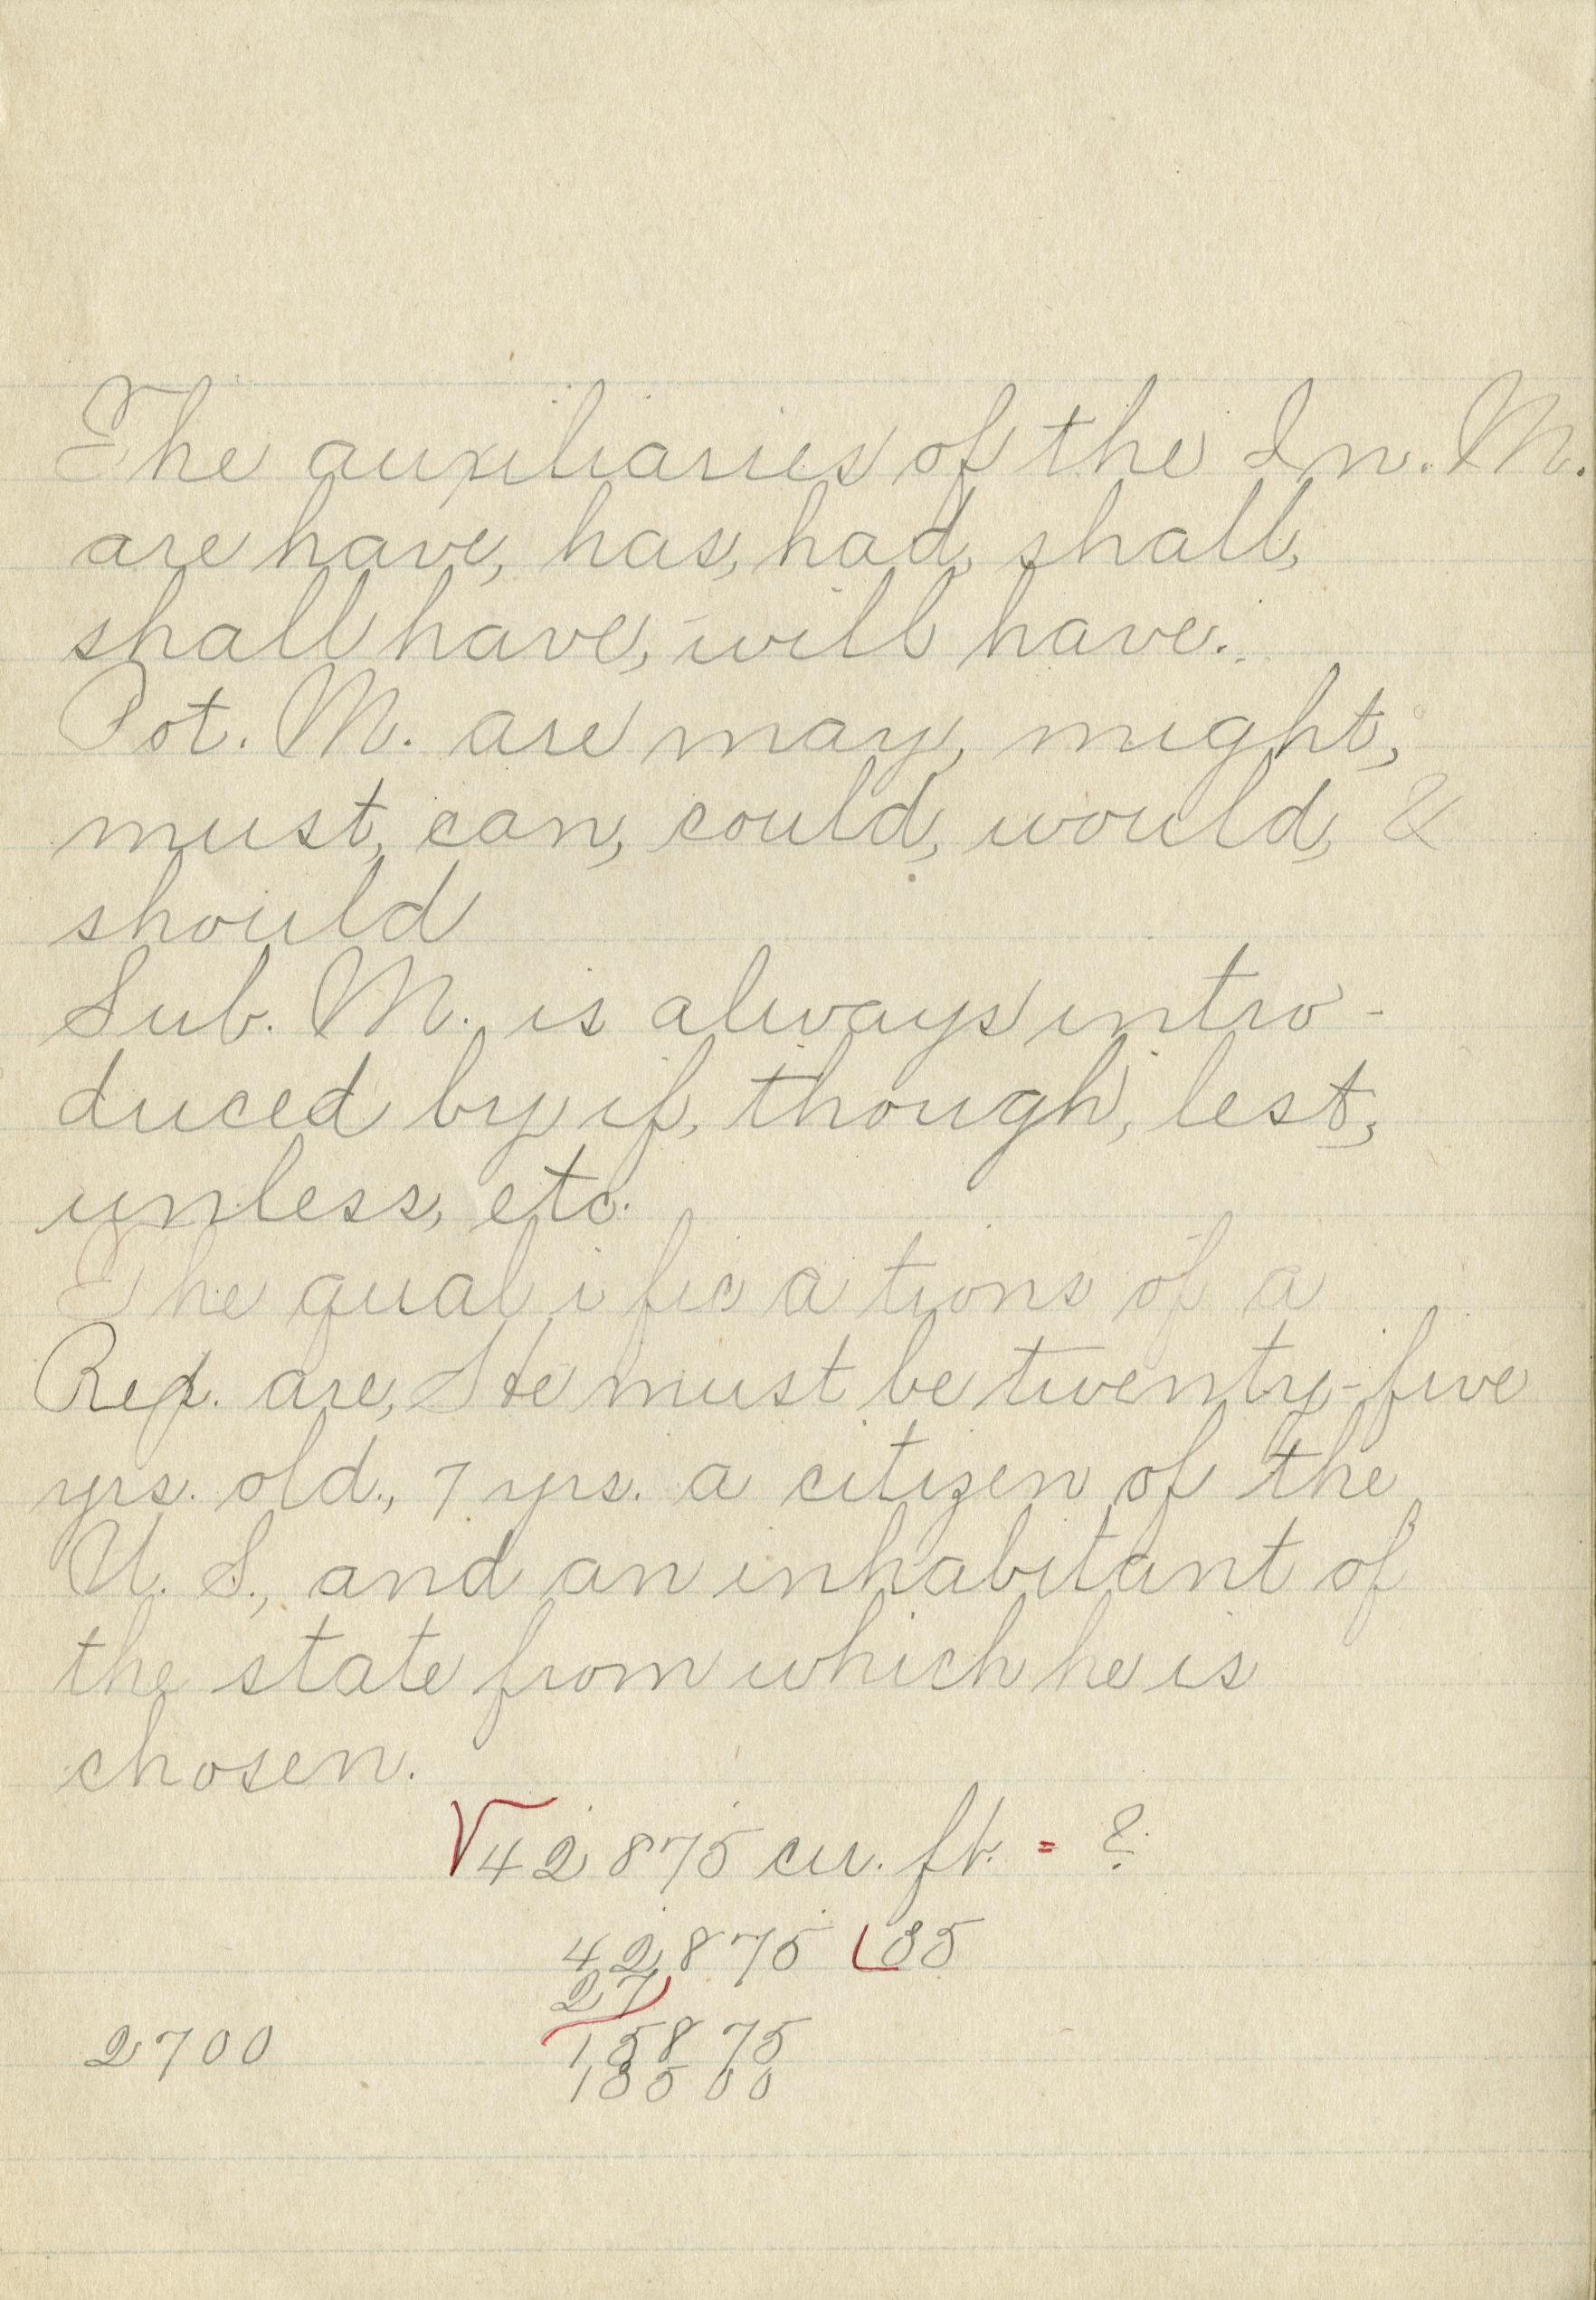 The auxiliaries of the In. M.
are have, has, had, shall,
shall have, will have.
Pot. M. are may, might,
must, can, could, would, &
should
Sub. M. is always intro-
duced by if, though, lest,
unless, etc.
The qualifications of a
Rep. are, He must be twenty-five
yrs. old., 7 yrs. a citizen of the
U. S., and an inhabitant of
the state from which he is
chosen.
√42875 cu. ft. = ?
42875 35
27
2700 15875
13500